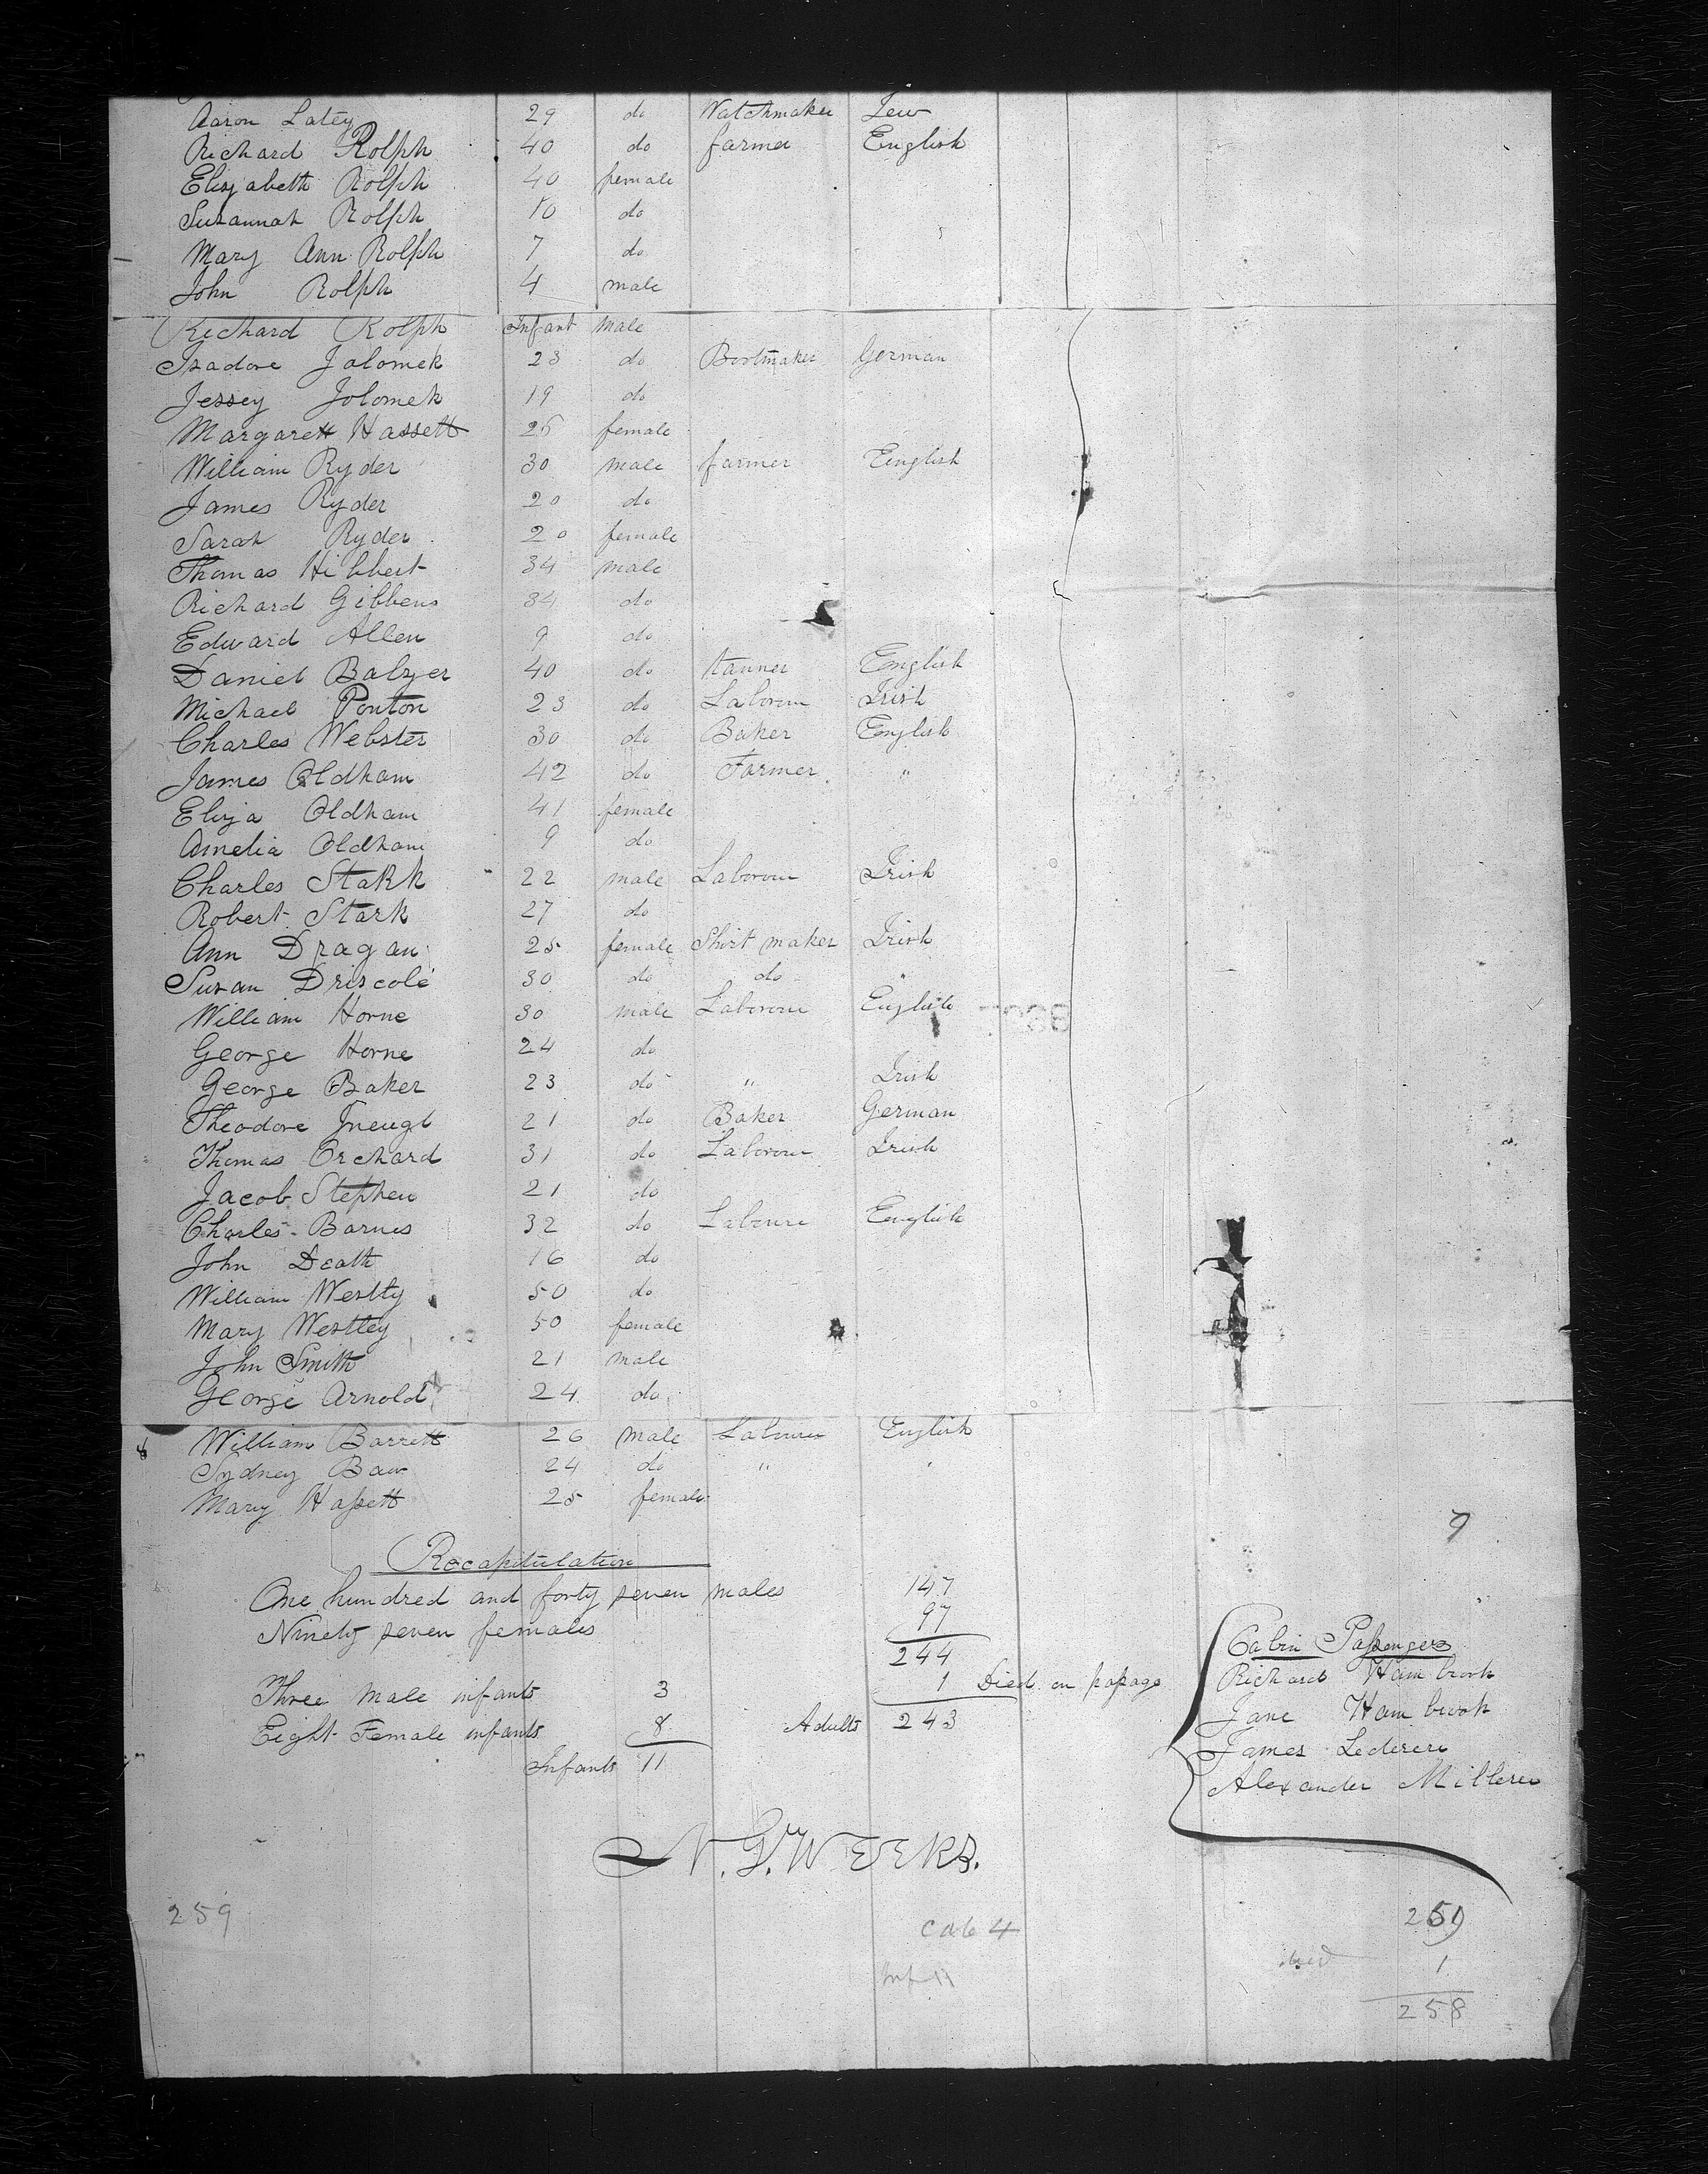 Aaron Latey 29 do Watchmaker Jew
Richard Rolph 40 do farmer English
Elizabeth Rolph 40 female
Susannah Rolph 10 do
Mary Ann Rolph 7 do
John Rolph 4 male
Richard Rolph Infant male
Isadore Jolomek 23 do Bootmaker German
Jessey Jolomek 19 do
Margarett Hassett 25 female
William Ryder 30 male farmer English
James Ryder 20 do
Sarah Ryder 20 female
Thomas Hibbert 34 male
Richard Gibbens 34 do
Edward Allen 9 do
Daniel Balzer 40 do tanner English
Michael Ponton 23 do Laborour Irish
Charles Webster 30 do Baker English
James Oldham 42 do Farmer "
Eliza Oldham 41 female
Amelia Oldham 9 do
Charles Stark 22 male Laborour Irish
Robert Stark 27 do
Ann Dragan 25 female Shirt maker Irish
Susan Driscole 30 do do "
William Horne 30 male Laborour English
George Horne 24 do
George Baker 23 do " Irish
Theodore 21 do Baker German
Thomas Orchard 31 do Laborour Irish
Jacob Stephen 21 do
Charles Barnes 32 do English
John Death 16 do
William Westty 50 do
Mary Westley 50 female
John Smith 21 male
George Arnold 24 do
William Barrett 26 male Labourer English
Sydney 24 do " "
Mary Hassett 25 female
Recapitulation
One hundred and forty seven males 147
Ninety seven females 97
244
Three male infants 3 1 Died on passage
Eight Female infants 8 Adults 243
Infants 11
Cabin Passengers
Richard Hambrook
Jane Hambrook
James Lederere
Alexander Millerer
N. G. WEEKS.
259
cab 4
Inf 11
259
died 1
258
9